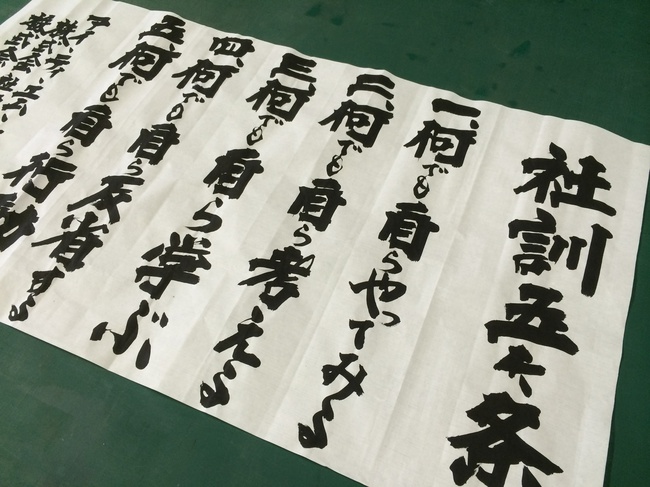 社訓五ヶ条
一、何でも自らやってみる
二、何でも自ら考える
三、何でも自ら学ぶ
四、何でも自ら反省する
五、何でも自ら行動
アイ・ティ
株式会社